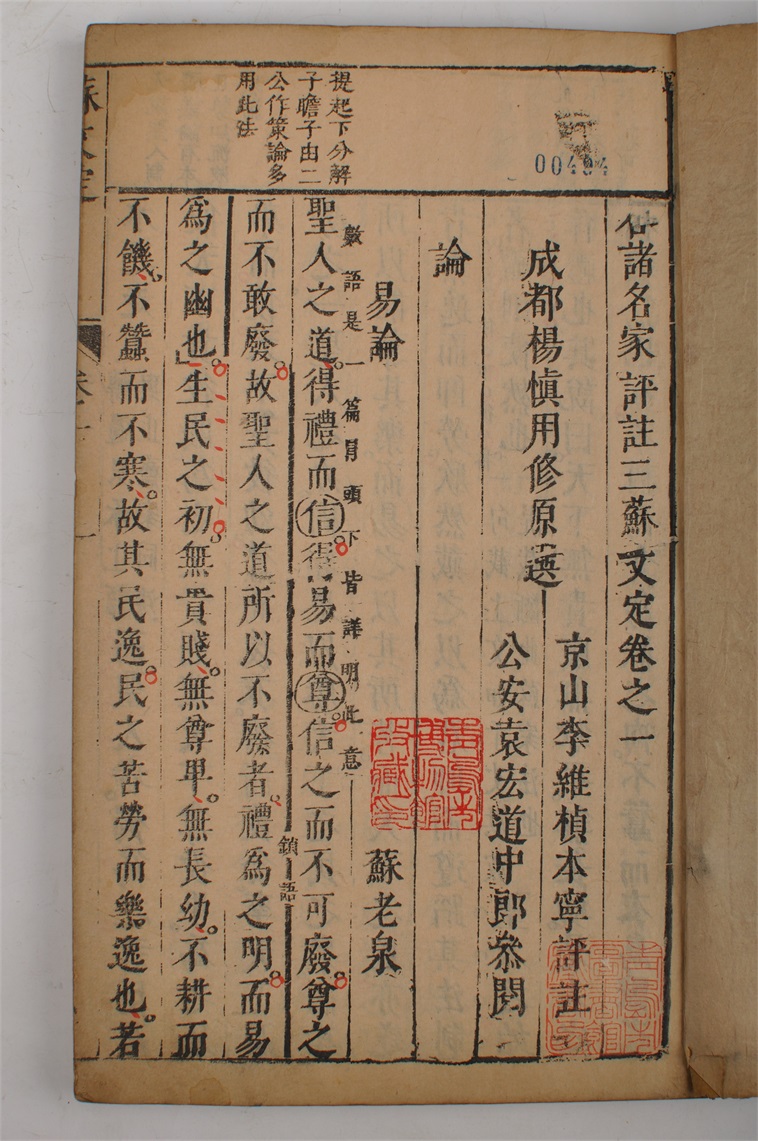 00494
合諸名家評註三蘇文定卷之一
成都楊慎用修原選
京山李維楨本寧評註
公安袁宏道中郎叅閱
論
易論 蘇老泉
青島市博物館收藏印
提起下分解
子瞻子由二
公作策論多
用此法
數語是一篇冒頭下皆詳明此意
聖人之道得禮而信得易而尊信之而不可廢尊之
鎖語
而不敢廢故聖人之道所以不廢者禮為之明而易
為之幽也生民之初無貴賤無尊卑無長幼不耕而
不饑不蠶而不寒故其民逸民之苦勞而樂逸也若
蘇文定
卷一
一